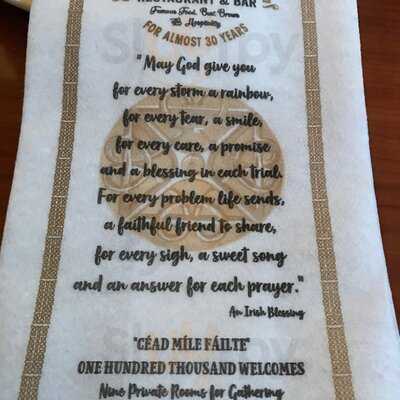 RESTAURANT & BAR
Famous Food, Best Brews
& Hospitality
FOR ALMOST 30 YEARS
"May God give you
for every storm a rainbow,
for every tear, a smile,
for every care, a promise
and a blessing in each trial.
For every problem life sends,
a faithful friend to share,
for every sigh, a sweet song
and an answer for each prayer."
An Irish Blessing
"CÉAD MÍLE FÁILTE"
ONE HUNDRED THOUSAND WELCOMES
Nine Private Rooms for Gathering